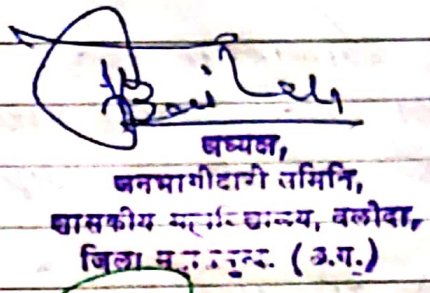 अध्यक्ष,
जनभागीदारी समिति,
शासकीय महाविद्यालय, बलौदा,
जिला (छ.ग.)